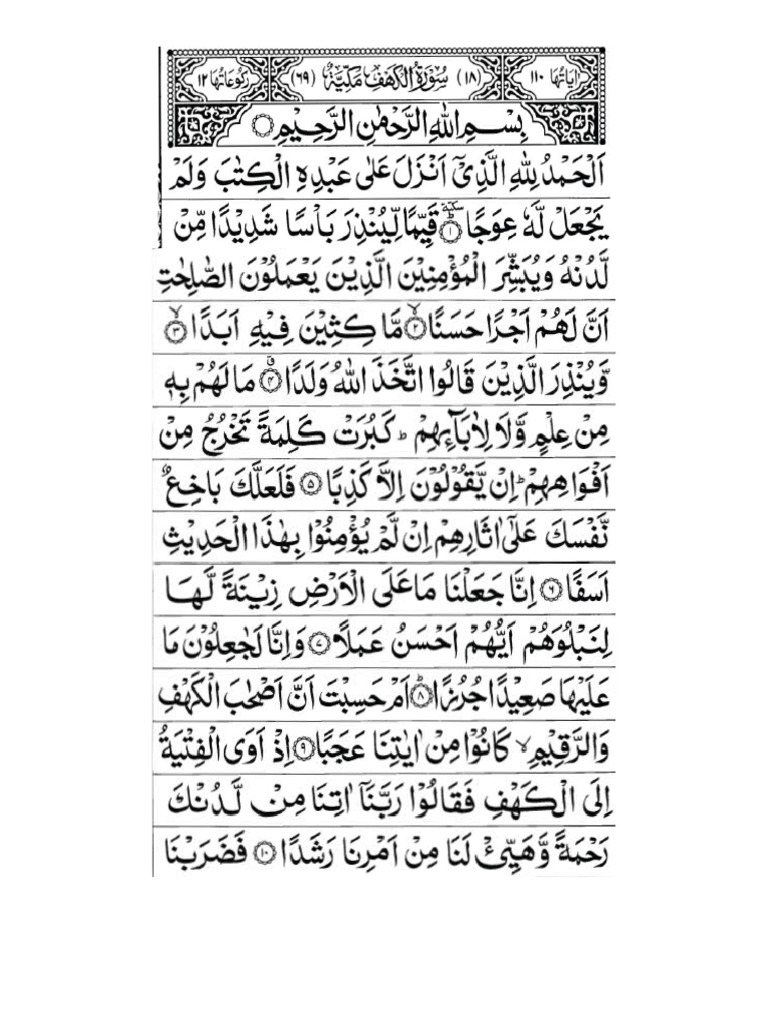 اٰیَاتُهَا ۱۱۰ (۱۸) سُوْرَةُ الْكَهْفِ مَكِّيَّةٌ (۶۹) رُكُوْعَاتُهَا ۱۲
بِسْمِ اللّٰهِ الرَّحْمٰنِ الرَّحِيْمِ ۝
اَلْحَمْدُ لِلّٰهِ الَّذِيْۤ اَنْزَلَ عَلٰى عَبْدِهِ الْكِتٰبَ وَلَمْ
يَجْعَلْ لَّهٗ عِوَجًا ؕ سكتة ۝۱ قَيِّمًا لِّيُنْذِرَ بَاْسًا شَدِيْدًا مِّنْ
لَّدُنْهُ وَيُبَشِّرَ الْمُؤْمِنِيْنَ الَّذِيْنَ يَعْمَلُوْنَ الصّٰلِحٰتِ
اَنَّ لَهُمْ اَجْرًا حَسَنًا ۙ۝۲ مَّا كِثِيْنَ فِيْهِ اَبَدًا ۙ۝۳
وَّيُنْذِرَ الَّذِيْنَ قَالُوا اتَّخَذَ اللّٰهُ وَلَدًا ۗ۝۴ مَا لَهُمْ بِهٖ
مِنْ عِلْمٍ وَّلَا لِاٰبَآئِهِمْ ؕ كَبُرَتْ كَلِمَةً تَخْرُجُ مِنْ
اَفْوَاهِهِمْ ؕ اِنْ يَّقُوْلُوْنَ اِلَّا كَذِبًا ۝۵ فَلَعَلَّكَ بَاخِعٌ
نَّفْسَكَ عَلٰۤى اٰثَارِهِمْ اِنْ لَّمْ يُؤْمِنُوْا بِهٰذَا الْحَدِيْثِ
اَسَفًا ۝۶ اِنَّا جَعَلْنَا مَا عَلَى الْاَرْضِ زِيْنَةً لَّهَا
لِنَبْلُوَهُمْ اَيُّهُمْ اَحْسَنُ عَمَلًا ۝۷ وَاِنَّا لَجٰعِلُوْنَ مَا
عَلَيْهَا صَعِيْدًا جُرُزًا ؕ۝۸ اَمْ حَسِبْتَ اَنَّ اَصْحٰبَ الْكَهْفِ
وَالرَّقِيْمِ ۙ كَانُوْا مِنْ اٰيٰتِنَا عَجَبًا ۝۹ اِذْ اَوَى الْفِتْيَةُ
اِلَى الْكَهْفِ فَقَالُوْا رَبَّنَاۤ اٰتِنَا مِنْ لَّدُنْكَ
رَحْمَةً وَّهَيِّئْ لَنَا مِنْ اَمْرِنَا رَشَدًا ۝۱۰ فَضَرَبْنَا